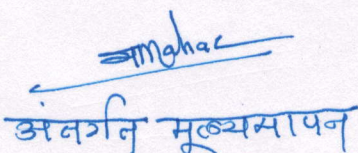 अंतर्गत मूल्यमापन